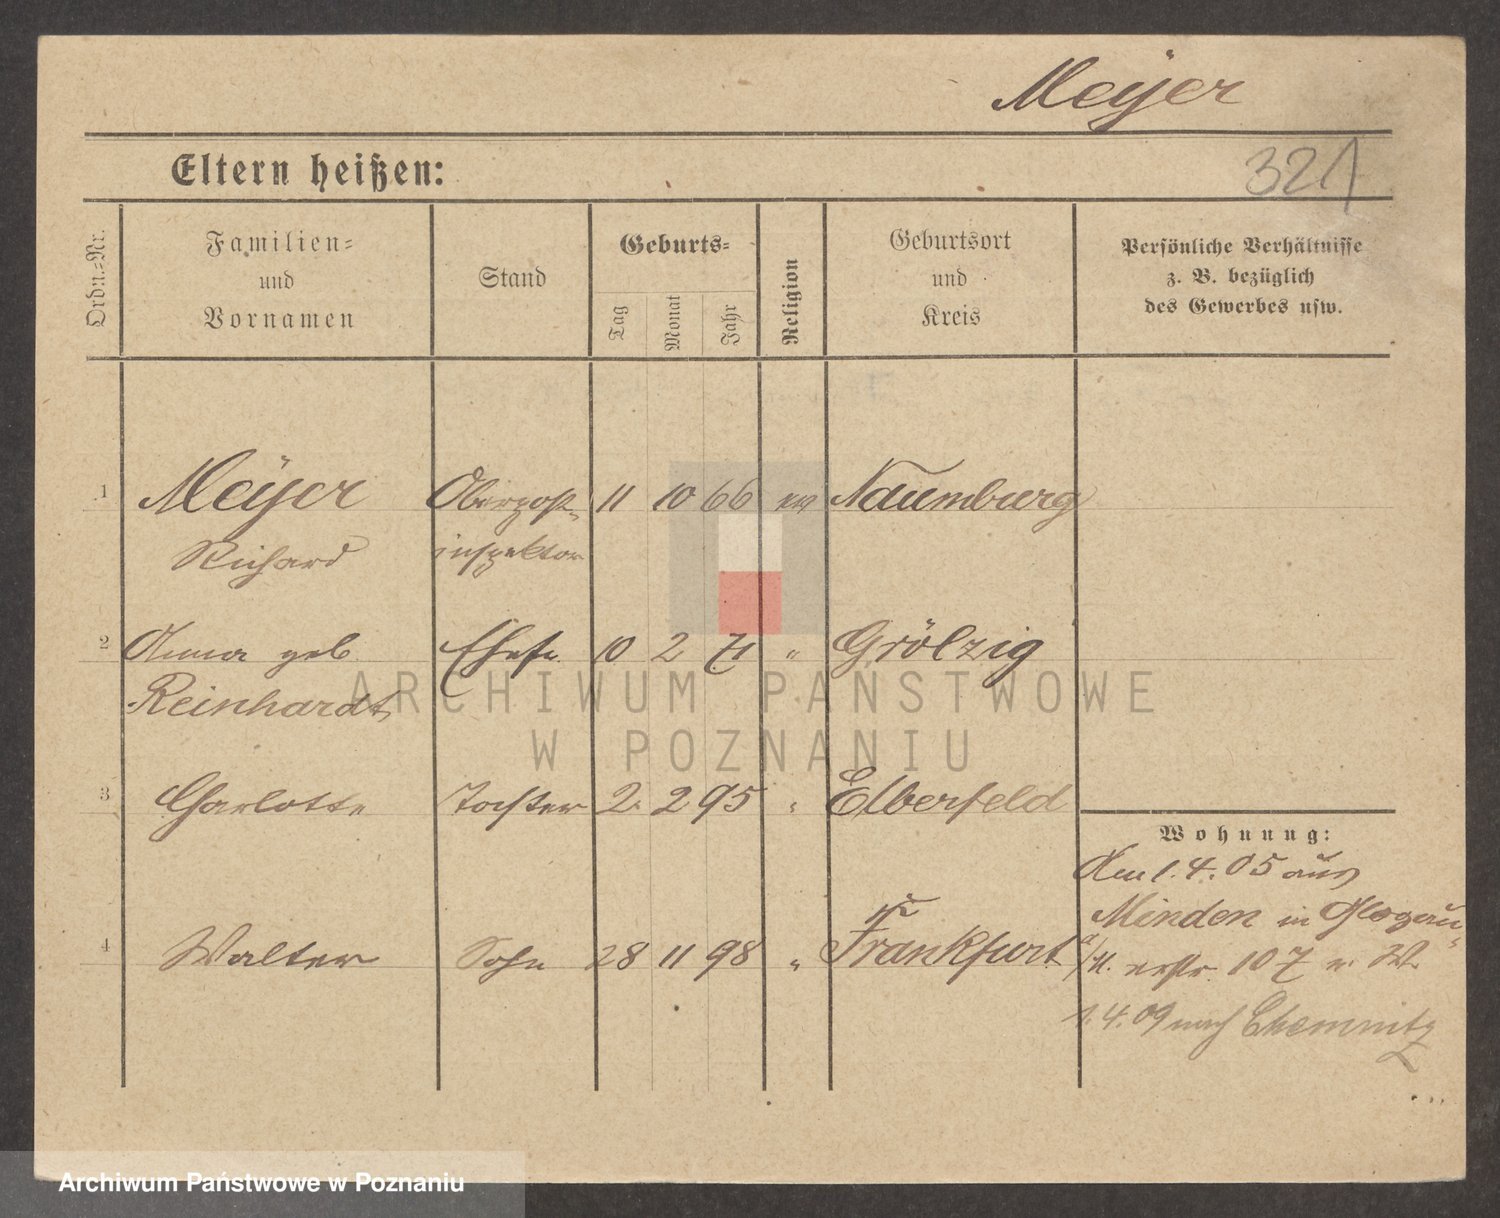 Meÿer
Eltern heißen:
321
Ordn.-Nr.
Familien-
und
Vornamen
Stand
Geburts-
Tag
Monat
Jahr
Religion
Geburtsort
und
Kreis
Persönliche Verhältnisse
z. B. bezüglich
des Gewerbes usw.
1 Meÿer Oberpost- 11 10 66 ev Naumburg
Richard inspektor
2 Anna geb Ehefr 10 2 71 " Gröbzig
Reinhardt
3 Charlotte Tochter 2. 2 95 " Elberfeld
Wohnung:
Am 1. 4. 05 aus
Minden in Glogau
4 Walter Sohn 28 11 98 " Frankfurt
107
1. 4. 09 nach Chemnitz
ARCHIWUM PAŃSTWOWE
W POZNANIU
Archiwum Państwowe w Poznaniu